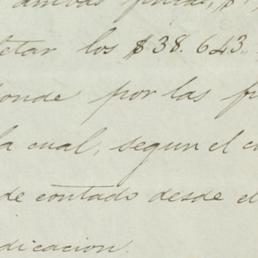 ambas fincas, $
tar los $38.643.
onde por las f
la cual, segun el c
de contado desde el
dicacion.